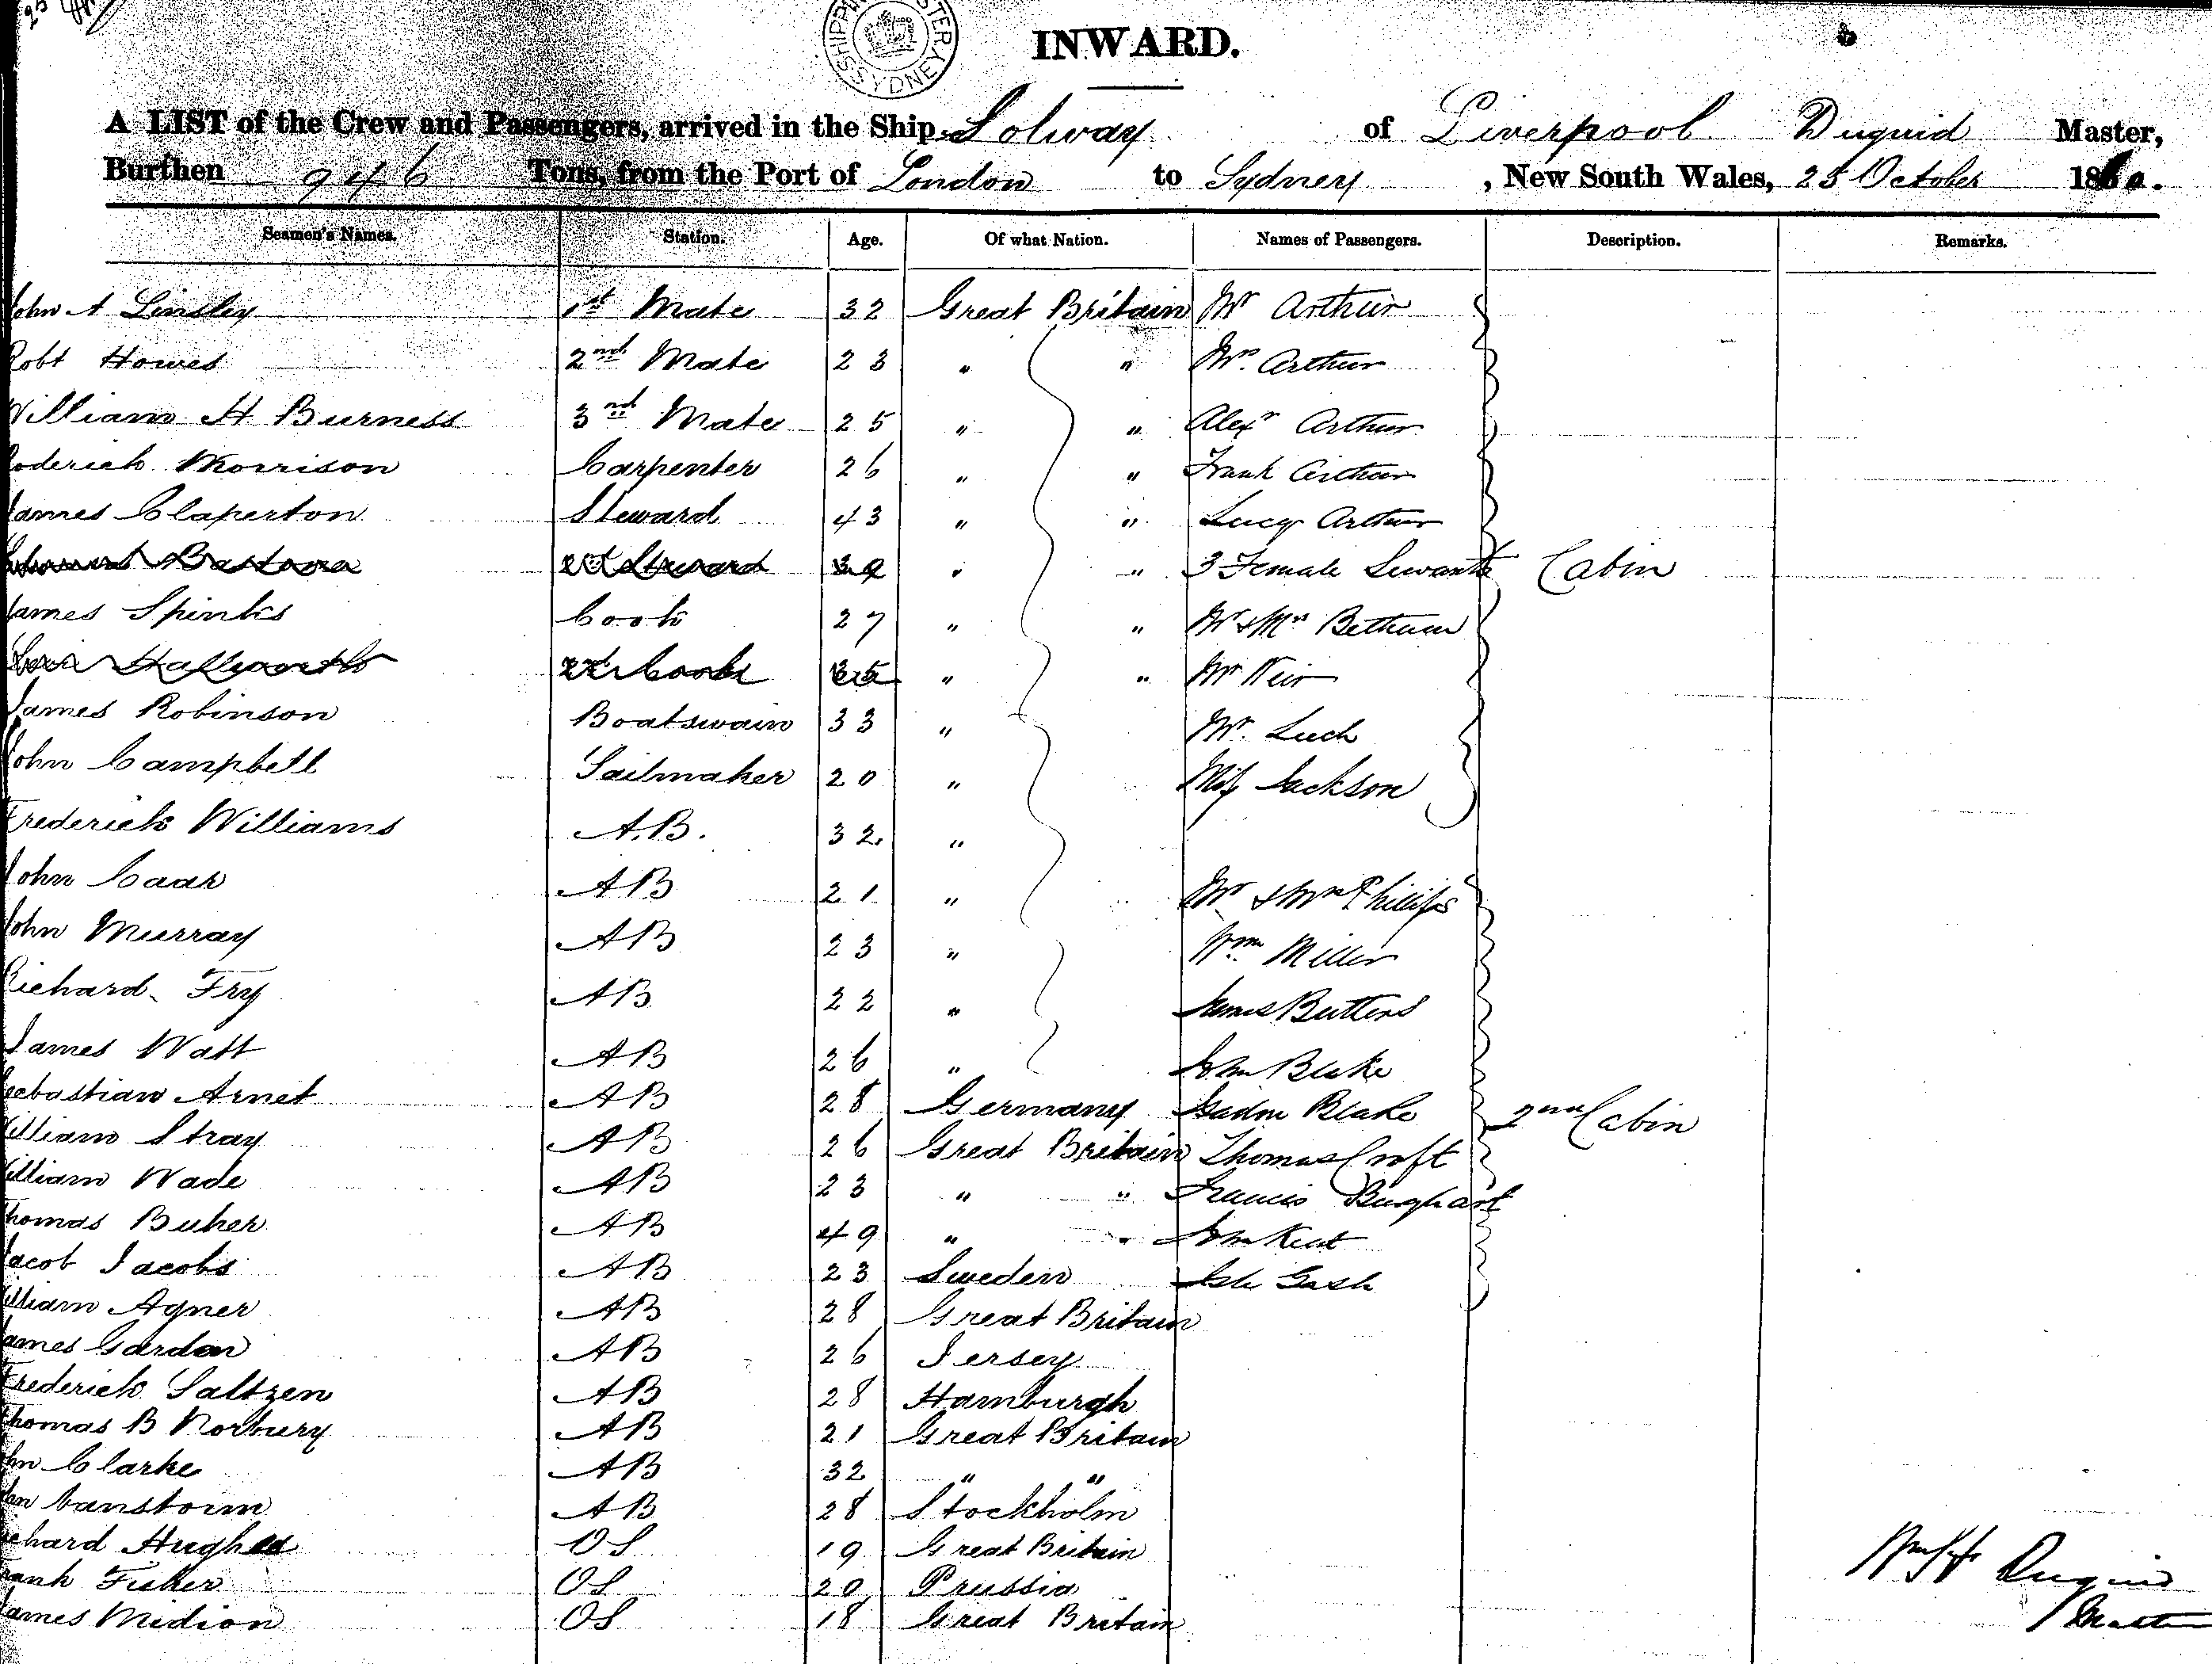 SHIPPING MASTER SYDNEY
INWARD.
A LIST of the Crew and Passengers, arrived in the Ship Solway of Liverpool Duguid Master,
Burthen 946 Tons, from the Port of London to Sydney, New South Wales, 25 October 186
Seamen's Names. Station. Age. Of what Nation. Names of Passengers. Description. Remarks.
John A Linsley 1st Mate 32 Great Britain Mr Arthur
Robt Howes 2nd Mate 23 " " Mrs Arthur
William H Burness 3rd Mate 25 " " Alexr Arthur
Roderick Morrison Carpenter 26 " " Frank Arthur
James Claperton Steward 43 " " Lucy Arthur
" " 3 Female Servants Cabin
James Spinks Cook 27 " " Mr & Mrs Bethune
" " Mr Weir
James Robinson Boatswain 33 " Mr
John Campbell Sailmaker 20 " Miss Jackson
Frederick Williams A.B. 32. "
John Caar AB 21 " Mr & Mrs Phillips
John Murray AB 23 " Wm Miller
Richard Fry AB 22 " James Butters
James Watt AB 26 " John Blake
Sebastian Arnet AB 28 Germany Blake 2nd Cabin
William Stray AB 26 Great Britain Thomas Croft
William Wade AB 23 " " Francis
Thomas Buher AB 49 " " John Keat
Jacob Jacobs AB 23 Sweden
William Agner AB 28 Great Britain
James Gardon AB 26 Jersey
Frederick Saltzen AB 28 Hamburgh
Thomas B Norbury AB 21 Great Britain
John Clarke AB 32 " "
AB 28 Stockholm
Richard Hughes OS 19 Great Britain
Frank Fisher OS 20 Prussia
James Midion OS 18 Great Britain
Duguid
Master